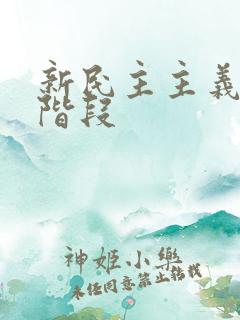 新民主主義
階段
神姬小樂
未经同意禁止转载